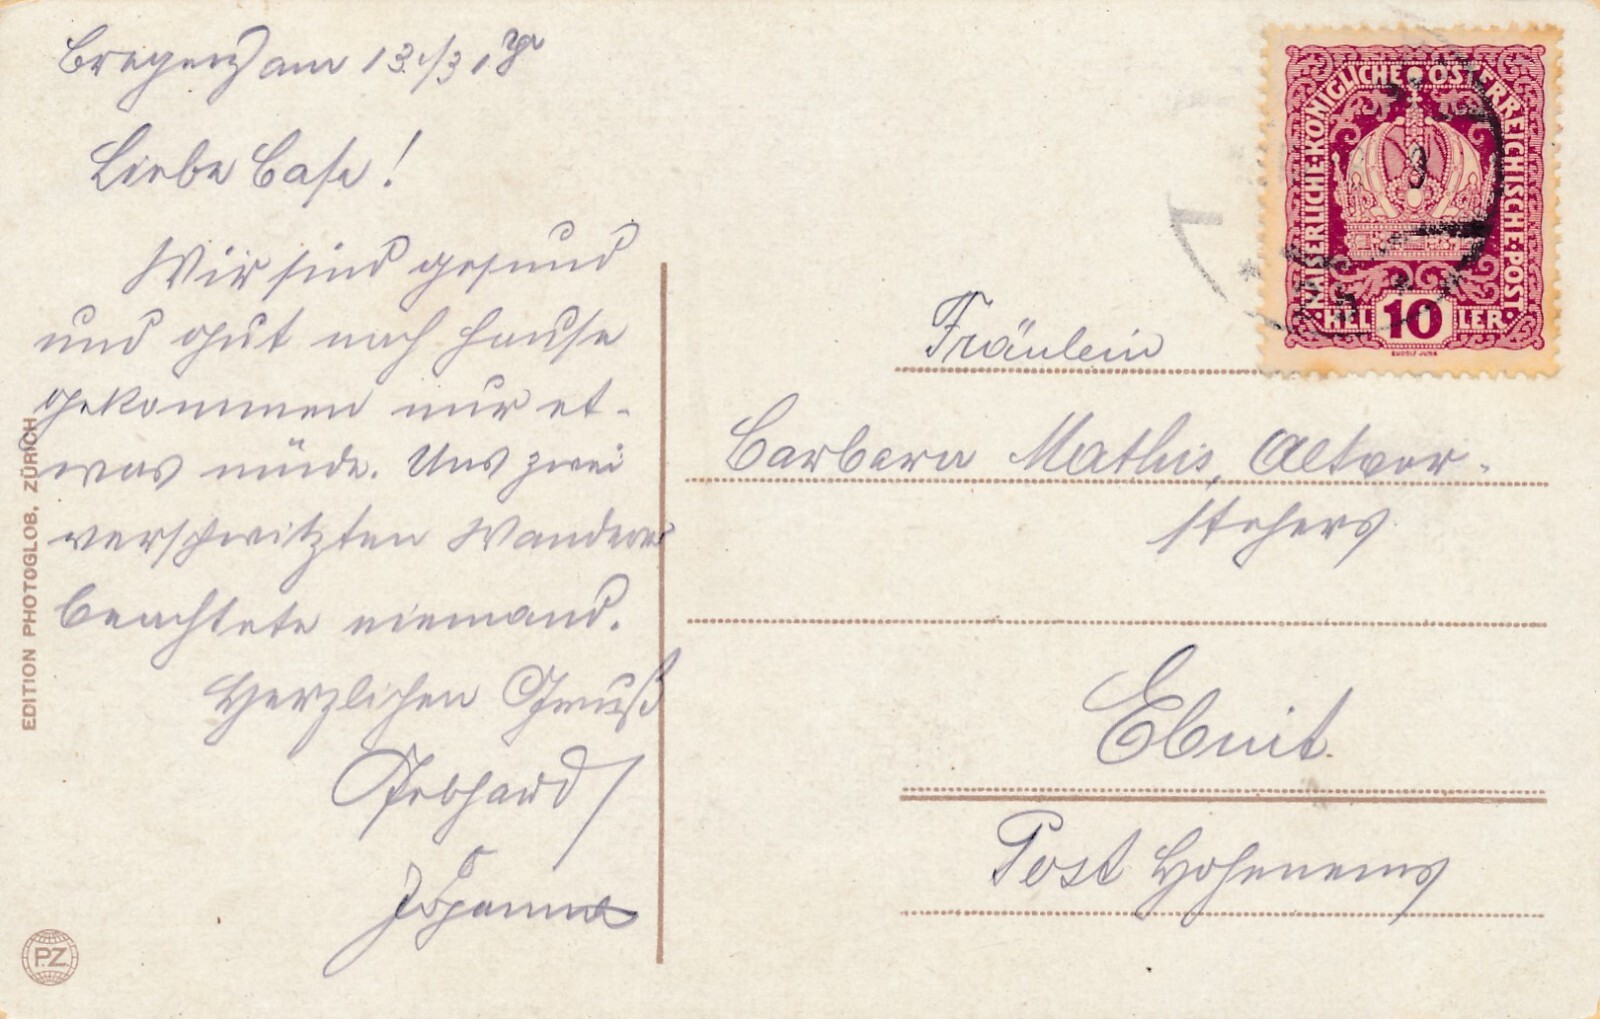 Bregenz am 13./3.18
Liebe Base!
Wir sind gesund
und gut nach Hause
gekommen nur et-
was müde. Uns zwei
verschwitzten Wanderer
beachtete niemand.
Herzlichen Gruß
Gebhard /
Johanna
EDITION PHOTOGLOB, ZÜRICH
P.Z.
KAISERLICHE·KÖNIGLICHE·ÖSTERREICHISCHE·POST
HEL 10 LER
RUDOLF JUNK
Fräulein
Barbara Mathis, Altvor-
stehers
Ebnit.
Post Hohenems